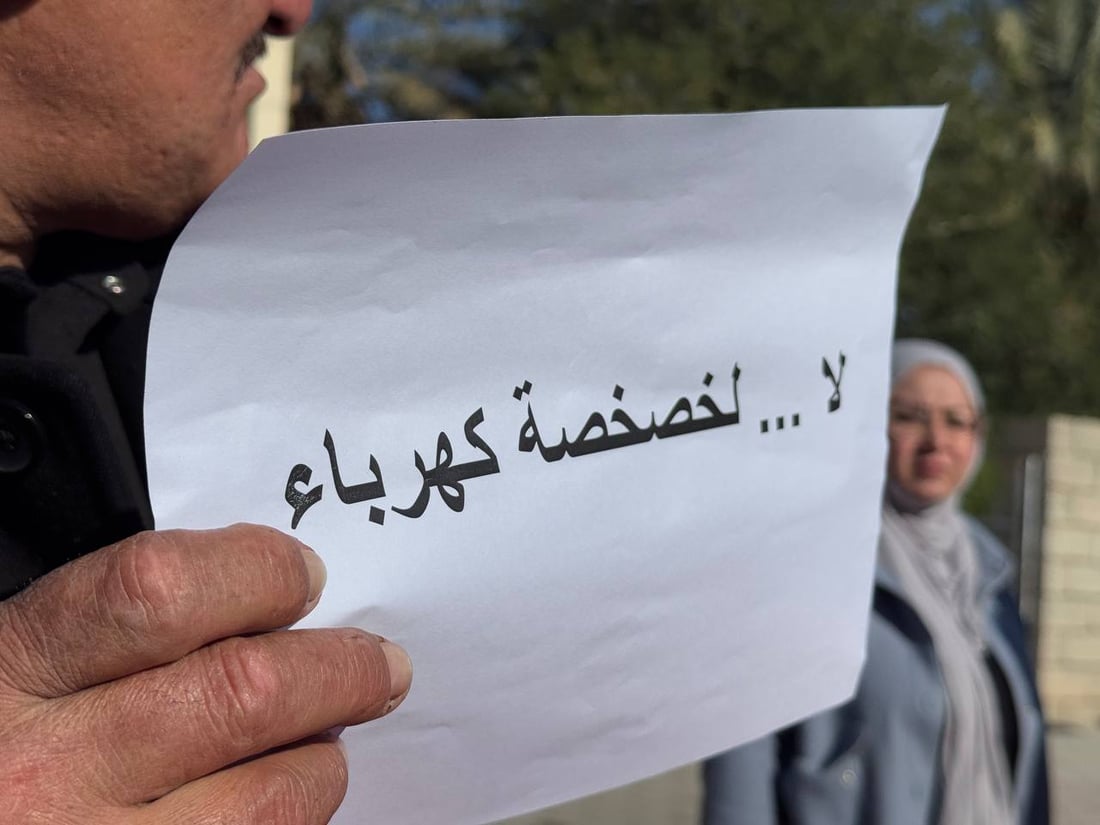 لا ... لخصخصة كهرباء